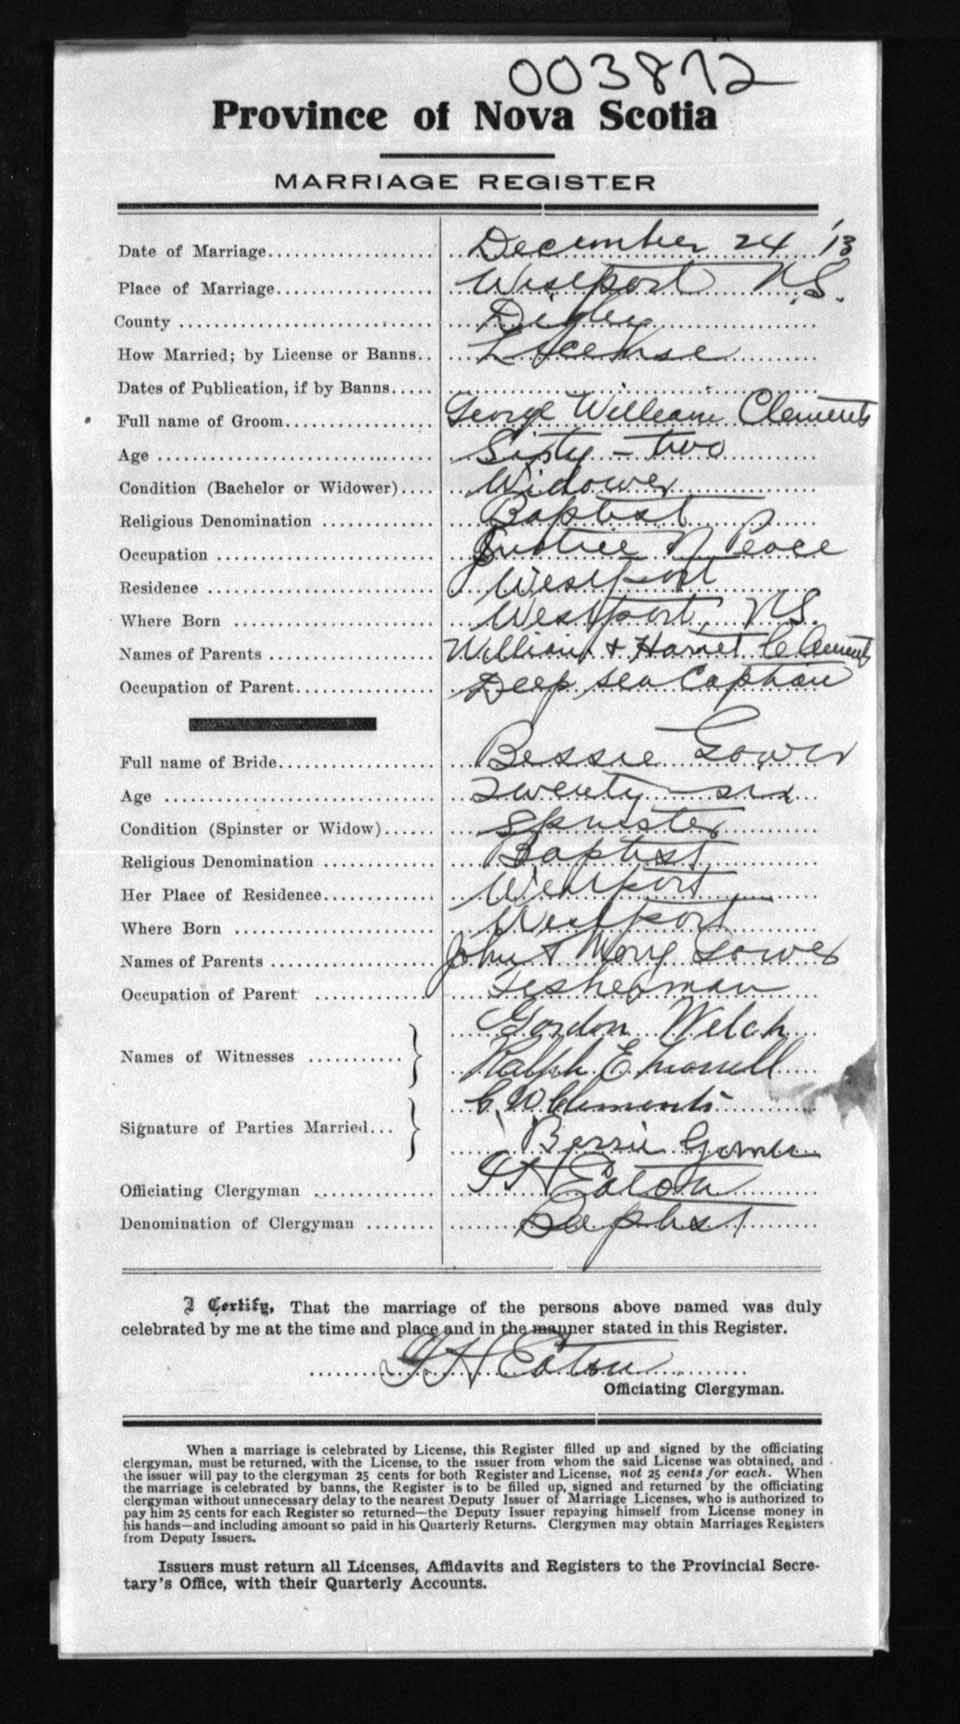 003872
Province of Nova Scotia
MARRIAGE REGISTER
Date of Marriage.................. December 24 '13
Place of Marriage................. Westport N.S.
County ............................ Digby
How Married; by License or Banns.. License
Dates of Publication, if by Banns.....
Full name of Groom................ George William Clements
Age ............................... Sixty-two
Condition (Bachelor or Widower).... Widower
Religious Denomination ............ Baptist
Occupation ........................ Justice Peace
Residence ......................... Westport
Where Born ........................ Westport, N.S.
Names of Parents .................. William & Harriet Clements
Occupation of Parent............... Deep sea Captain
Full name of Bride................. Bessie Gower
Age ............................... Twenty-six
Condition (Spinster or Widow)...... Spinster
Religious Denomination ............ Baptist
Her Place of Residence............. Westport
Where Born ........................ Westport
Names of Parents .................. John & Mary Gower
Occupation of Parent .............. Fisherman
Names of Witnesses ........... } Gordon Welch
Ralph E
Signature of Parties Married... } Clements
Bessie Gower
Officiating Clergyman ............. H Eaton
Denomination of Clergyman ........ Baptist
I Certify, That the marriage of the persons above named was duly
celebrated by me at the time and place and in the manner stated in this Register.
H Eaton
Officiating Clergyman.
When a marriage is celebrated by License, this Register filled up and signed by the officiating
clergyman, must be returned, with the License, to the issuer from whom the said License was obtained, and
the issuer will pay to the clergyman 25 cents for both Register and License, not 25 cents for each. When
the marriage is celebrated by banns, the Register is to be filled up, signed and returned by the officiating
clergyman without unnecessary delay to the nearest Deputy Issuer of Marriage Licenses, who is authorized to
pay him 25 cents for each Register so returned—the Deputy Issuer repaying himself from License money in
his hands—and including amount so paid in his Quarterly Returns. Clergymen may obtain Marriages Registers
from Deputy Issuers.
Issuers must return all Licenses, Affidavits and Registers to the Provincial Secre-
tary's Office, with their Quarterly Accounts.